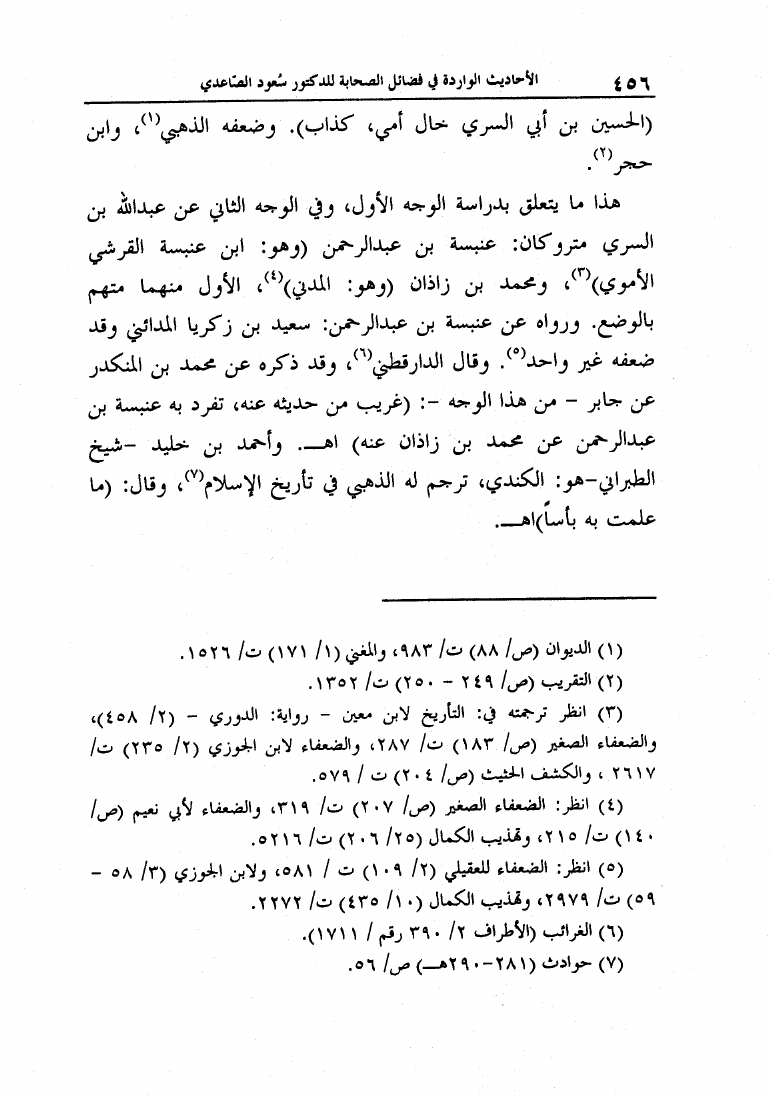 ٤٥٦ الأحاديث الواردة في فضائل الصحابة للدكتور سُعود الصّاعدي
(الحسين بن أبي السري خال أمي، كذاب). وضعفه الذهبي(١)، وابن
حجر(٢).
هذا ما يتعلق بدراسة الوجه الأول، وفي الوجه الثاني عن عبدالله بن
السري متروكان: عنبسة بن عبدالرحمن (وهو: ابن عنبسة القرشي
الأموي)(٣)، ومحمد بن زاذان (وهو: المدني)(٤)، الأول منهما متهم
بالوضع. ورواه عن عنبسة بن عبدالرحمن: سعيد بن زكريا المدائني وقد
ضعفه غير واحد(٥). وقال الدارقطني(٦)، وقد ذكره عن محمد بن المنكدر
عن جابر – من هذا الوجه –: (غريب من حديثه عنه، تفرد به عنبسة بن
عبدالرحمن عن محمد بن زاذان عنه) اهـ. وأحمد بن خليد –شيخ
الطبراني–هو: الكندي، ترجم له الذهبي في تأريخ الإسلام(٧)، وقال: (ما
علمت به بأساً)اهـ.
(١) الديوان (ص/ ٨٨) ت/ ٩٨٣، والمغني (١/ ١٧١) ت/ ١٥٢٦.
(٢) التقريب (ص/ ٢٤٩ – ٢٥٠) ت/ ١٣٥٢.
(٣) انظر ترجمته في: التأريخ لابن معين – رواية: الدوري – (٢/ ٤٥٨)،
والضعفاء الصغير (ص/ ١٨٣) ت/ ٢٨٧، والضعفاء لابن الجوزي (٢/ ٢٣٥) ت/
٢٦١٧ ، والكشف الحثيث (ص/ ٢٠٤) ت / ٥٧٩.
(٤) انظر: الضعفاء الصغير (ص/ ٢٠٧) ت/ ٣١٩، والضعفاء لأبي نعيم (ص/
١٤٠) ت/ ٢١٥، وتهذيب الكمال (٢٥/ ٢٠٦) ت/ ٥٢١٦.
(٥) انظر: الضعفاء للعقيلي (٢/ ١٠٩) ت / ٥٨١، ولابن الجوزي (٣/ ٥٨ –
٥٩) ت/ ٢٩٧٩، وتهذيب الكمال (١٠/ ٤٣٥) ت/ ٢٢٧٢.
(٦) الغرائب (الأطراف ٢/ ٣٩٠ رقم / ١٧١١).
(٧) حوادث (٢٨١–٢٩٠هـ) ص/ ٥٦.